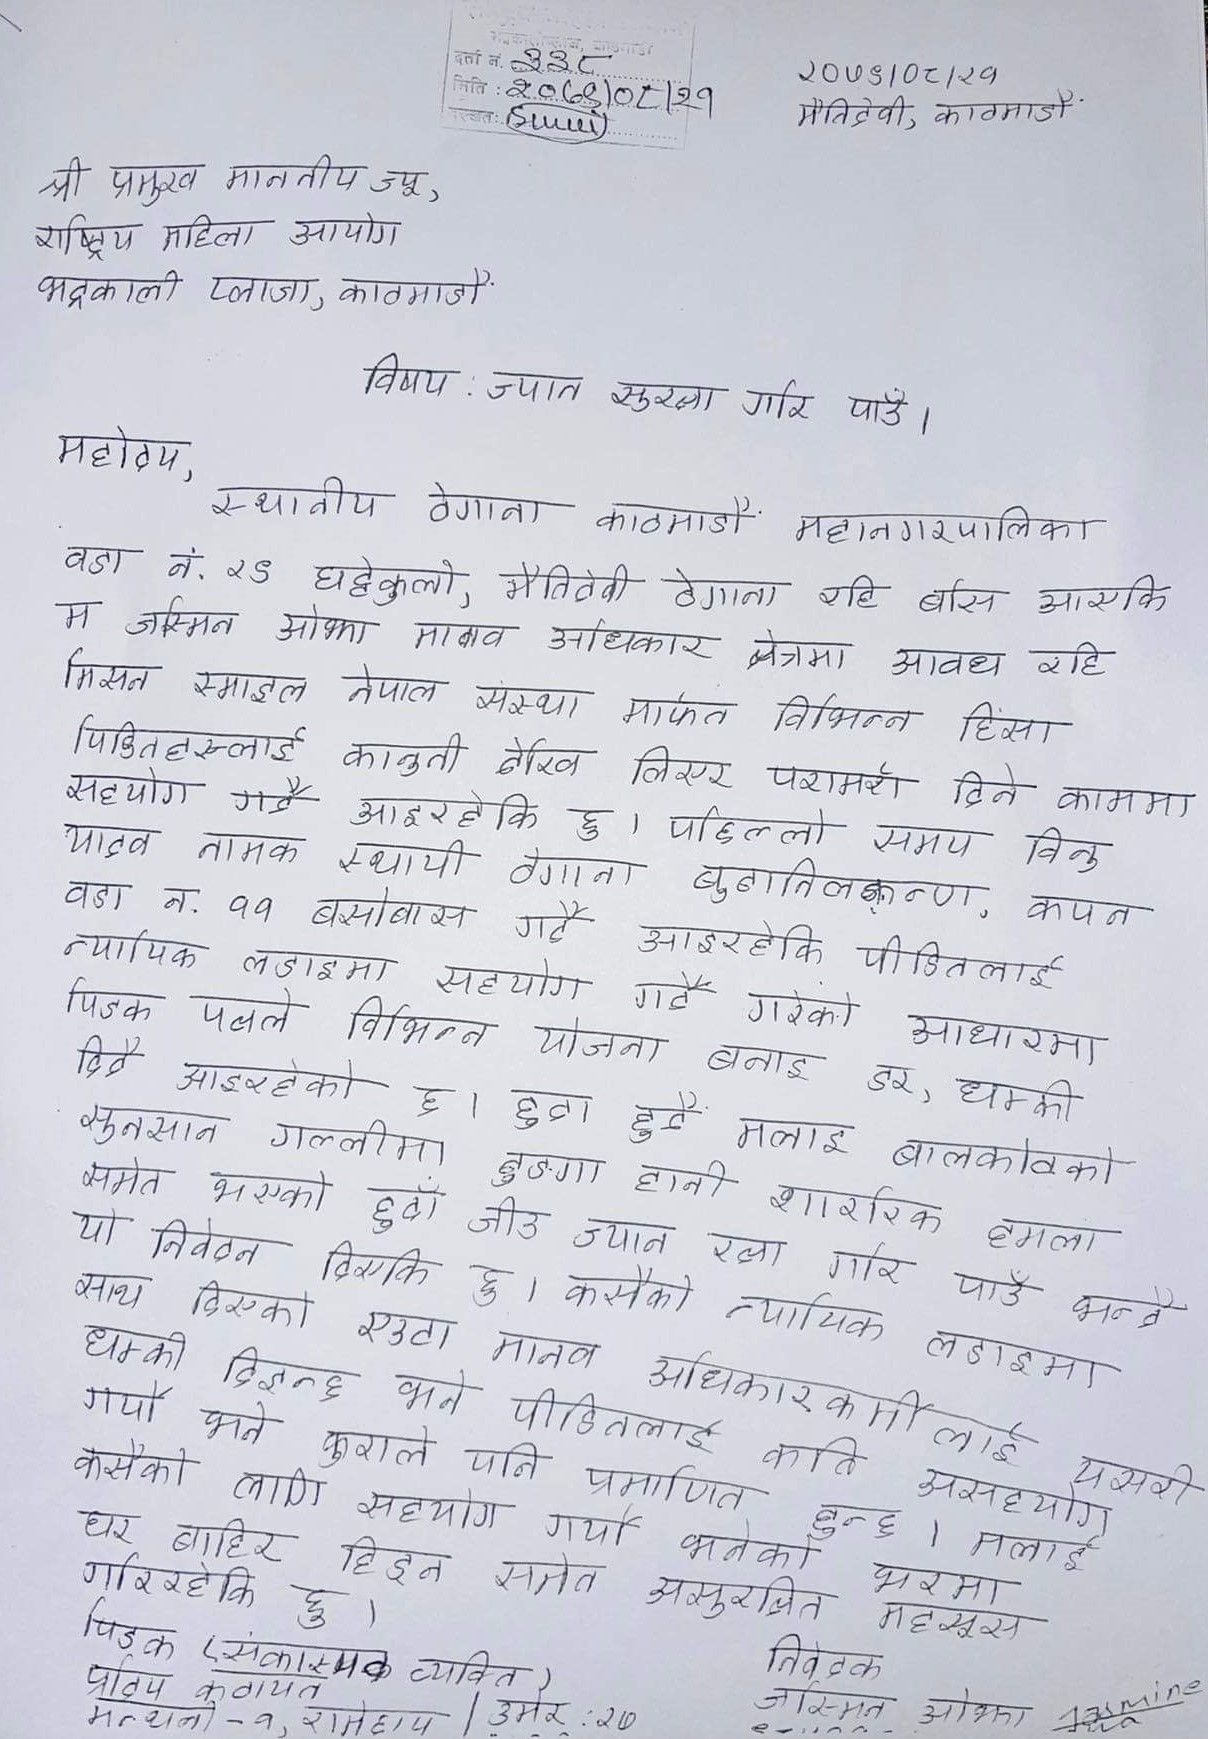 दर्ता नं. ३३८
मिति : २०७९/०८/२१
२०७९/०८/२१
मैतिदेवी, काठमाडौं
श्री प्रमुख माननीय ज्यू,
राष्ट्रिय महिला आयोग
भद्रकाली प्लाजा, काठमाडौं
विषय : ज्यान सुरक्षा गरि पाउँ ।
महोदय,
स्थानीय ठेगाना काठमाडौं महानगरपालिका
वडा नं. २९ घट्टेकुलो, मैतिदेवी ठेगाना रहि बसि आएकि
म जस्मिन ओझा मानव अधिकार क्षेत्रमा आवध रहि
मिसन स्माइल नेपाल संस्था मार्फत विभिन्न हिंसा
पिडितहरूलाई कानुनी देखि लिएर परामर्श दिने काममा
सहयोग गर्दै आइरहेकि छु । पछिल्लो समय विनु
यादव नामक स्थायी ठेगाना बुढानिलकण्ठ, कपन
वडा न. ११ बसोबास गर्दै आइरहेकि पीडितलाई
न्यायिक लडाइमा सहयोग गर्दै गरेको आधारमा
पिडक पक्षले विभिन्न योजना बनाइ डर, धम्की
दिदै आइरहेको छ । हुदा हुदै मलाइ बालकोटको
सुनसान गल्लीमा ढुङ्गा हानी शारिरिक हमला
समेत भएको हुदाँ जीउ ज्यान रक्षा गरि पाउँ भन्दै
यो निवेदन दिएकि छु । कसैको न्यायिक लडाइमा
साथ दिएको एउटा मानव अधिकारकर्मीलाई यसरी
धम्की दिइन्छ भने पीडितलाई कति असहयोग
गर्यो भने कुराले पनि प्रमाणित हुन्छ । मलाई
कसैको लागि सहयोग गर्यो भनेको भरमा
घर बाहिर हिड्न समेत असुरक्षित महसूस
गरिरहेकि छु ।
पिडक (संकास्पक व्यक्ति)
प्रदिप कठायत
मन्थली - १, रामेछाप / उमेर : २७
निवेदक
जस्मिन ओझा Jasmine